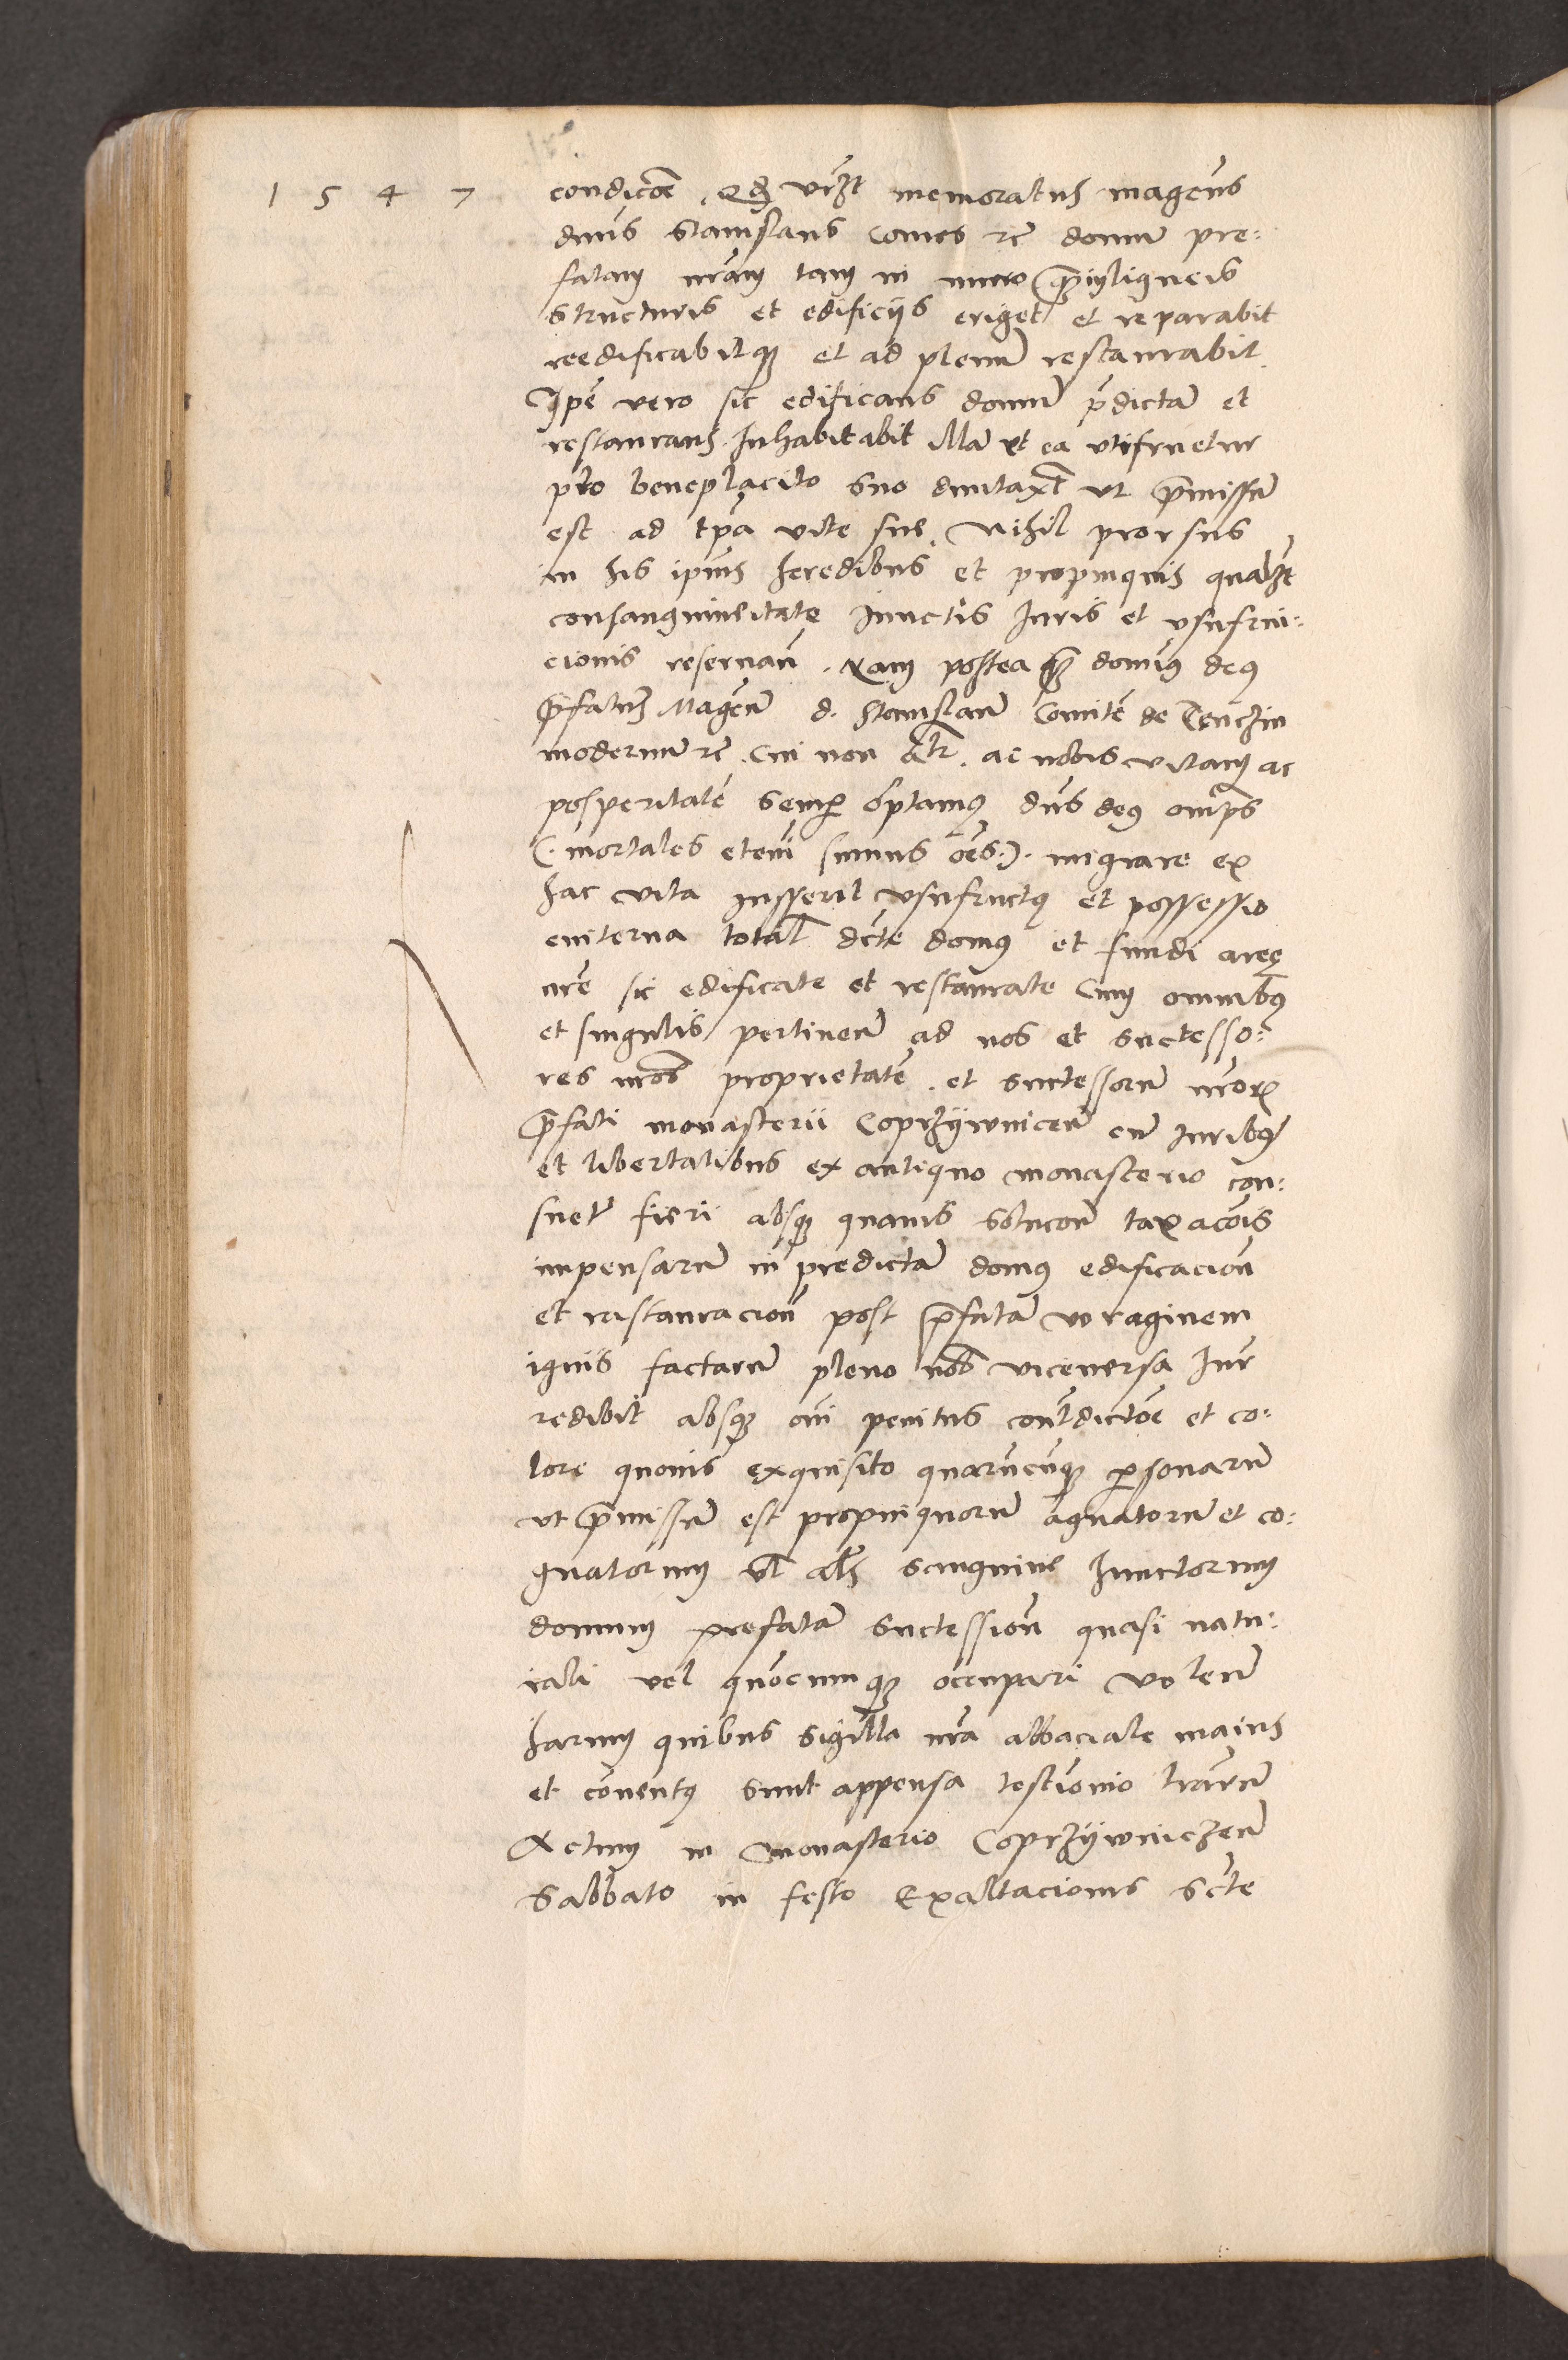 1 5 4 7
condicōe. Qđ vcȝt memoratus magcūs
dnūs Stanislaus Comes rc̄ domū pre:
fatam nrām tam in muro qͣm in ligneis
structuris et edificijs eriget et reparabit
reedificabitqȝ et ad plenū restaurabit.
Ipē vero sic edificans domū p̄dictā et
restaurans Inhabitabit illā et ea vtifruetur
pro beneplacito suo duntaxt ut p̄missū
est ad tpā vite sue. Nihil prorsus
in his ipius heredibus et propinquis qualȝt
consanguineitate Iunctis Iuris et vsufrui:
cionis reseruan̄. Nam posteaqȝ domūs deus
p̄fatum Magcū d. Stanislaū Comitē de Tenczin
modernū rc̄. Cui non alr. ac nobis vitam ac
posperitatē semp optamus dn̄s deus omps
(. mortales eteni sumus oēs.). migrare ex
hac vita iusserit vsufructus et possessio
euiterna total dcte domus et fundi aree
nrē sic edificate et restaurate Cum omnibus
et singulis pertinen̄ ad nos et successo:
res nros proprietatē. et successorū nrōrꝝ
p̄fati monasterii Coprzywnicen̄ cū Iuribus
et libertatibus ex antiquo monasterio con:
suet fieri absqȝ quauis solucōe taxacōis
impensarū in predictā domus edificacion̄
et ristauracion̄ post p̄fatā voraginem
ignis factarū pleno nob viceuersa Iur
redibit absqȝ oni penitus cont̄dictōe et co:
lore quouis exquisito quarūcūqȝ psonarū
ut p̄missū est propinquorū agnatorū et co:
gnatorum vl als sanguine Iunctorum
domum prefatā succession̄ quasi natu:
rali vel quocumqȝ occupari volen̄
harum quibus sigilla nrā abbaciale maius
et conentus sunt appensa testiōnio lrarū
Actum in Monasterio Coprzywniczen̄
Sabbato in festo Exaltacionis scte